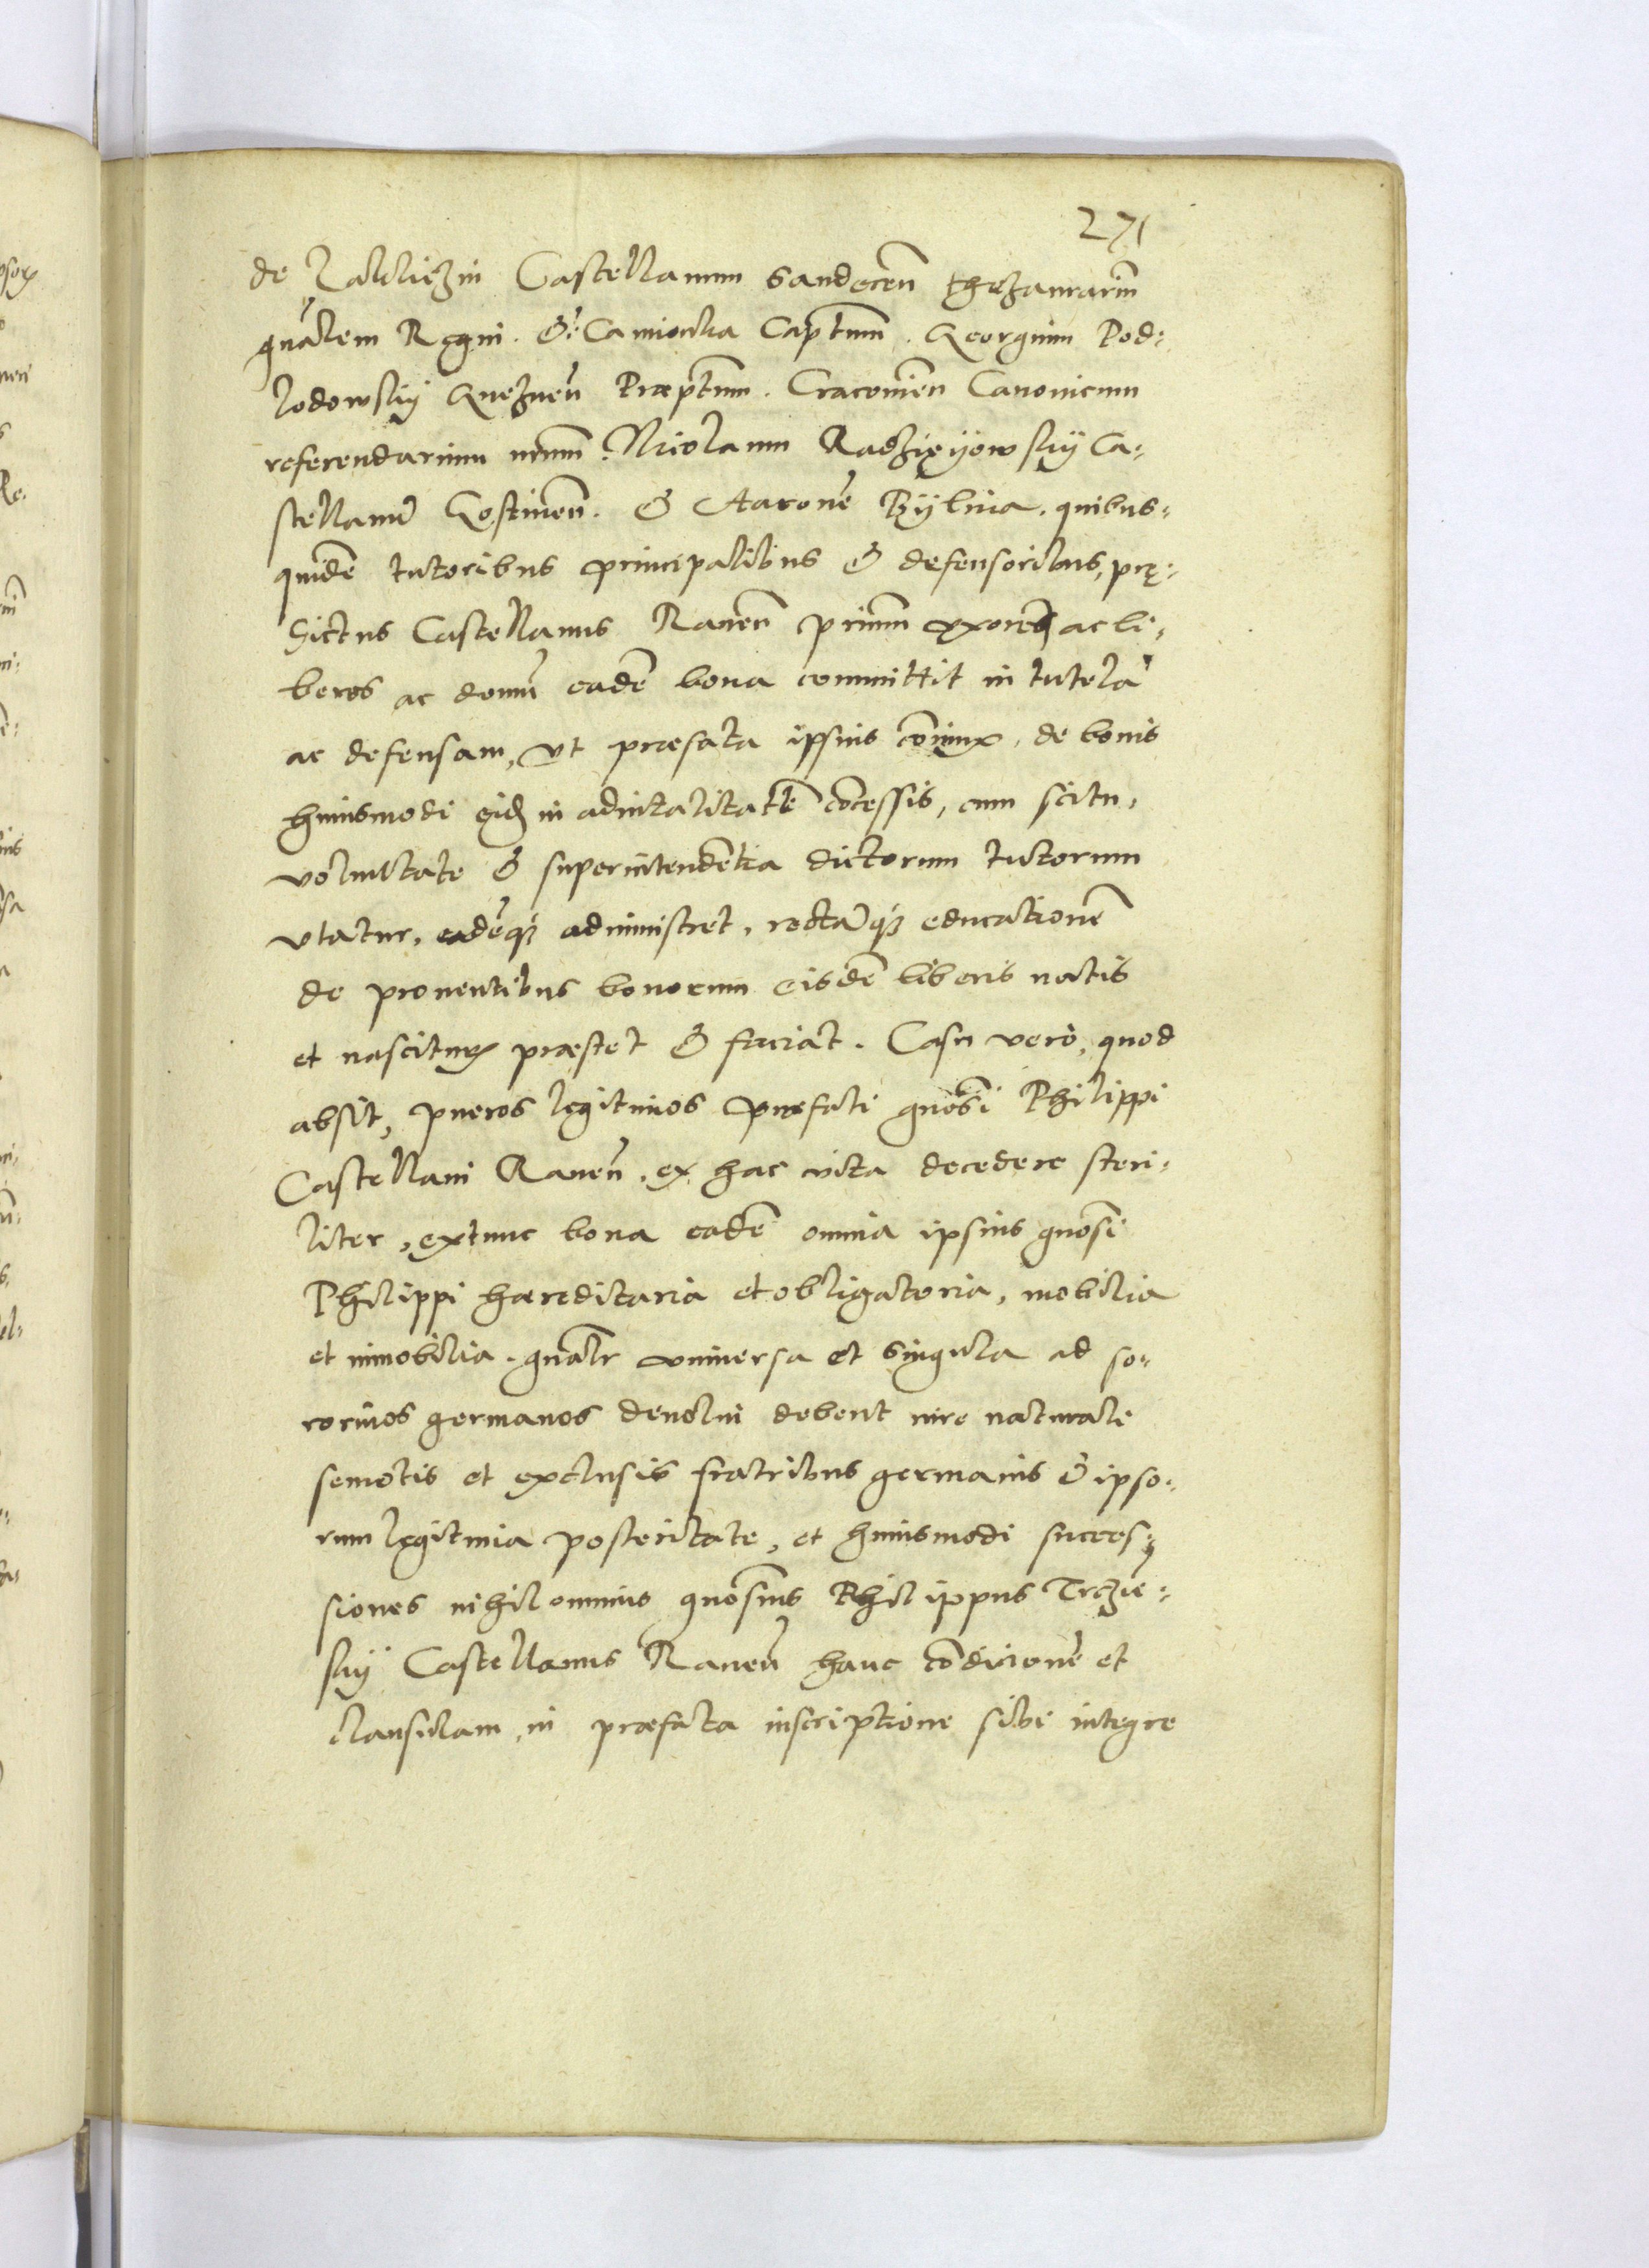 271
de Zakliczin Castellanum Sandecen̄ thezaurariū
gnālem Regni. & Camionka Captm̄. Georgium Pod:
lodowskij Gneznen̄ Præptm̄. Cracovien̄ Canonicum
referendarium nrūm. Nicolaum Radziejyowskij Ca:
stellanū Gostinen̄. & Aaronē Bÿlina. quibus:
quidē tutoribus principalibus & defensoribus, prę:
dictus Castellanus Raven̄ primū uxorē ac li:
beros ac domū eadē bona committit in tutelā
ac defensam, ut præfata ipsius cōniunx, de bonis
huiusmodi eid in advitalitatē cōcessis, cum scitu,
voluntate & superintendētia dictorum tutorum
utatur, eadēq3 administret, rectāq3 educationē
de proventibus bonorum eisdē liberis natis
et nascituris præstet & faciat. Casu verò, quod
absit, pueros legitimos præfati gnōsi Philippi
Castellani Raven̄. ex hac vita decedere steri:
liter, extunc bona eadē omnia ipsius gnōsi
Philippi hæreditaria et obligatoria, mobilia
et immobilia. gnālr universa et singula ad so:
rorinos germanos devolvi debent iure naturali
semotis et exclusis fratribus germanis & ipso:
rum legitimia posteritate, et huiusmodi succes:
siones nihilominus gnōsus Philippus Trzcie:
skij Castellanus Raven̄ hanc cōdicionē et
clausulam, in præfata inscriptione sibi integre